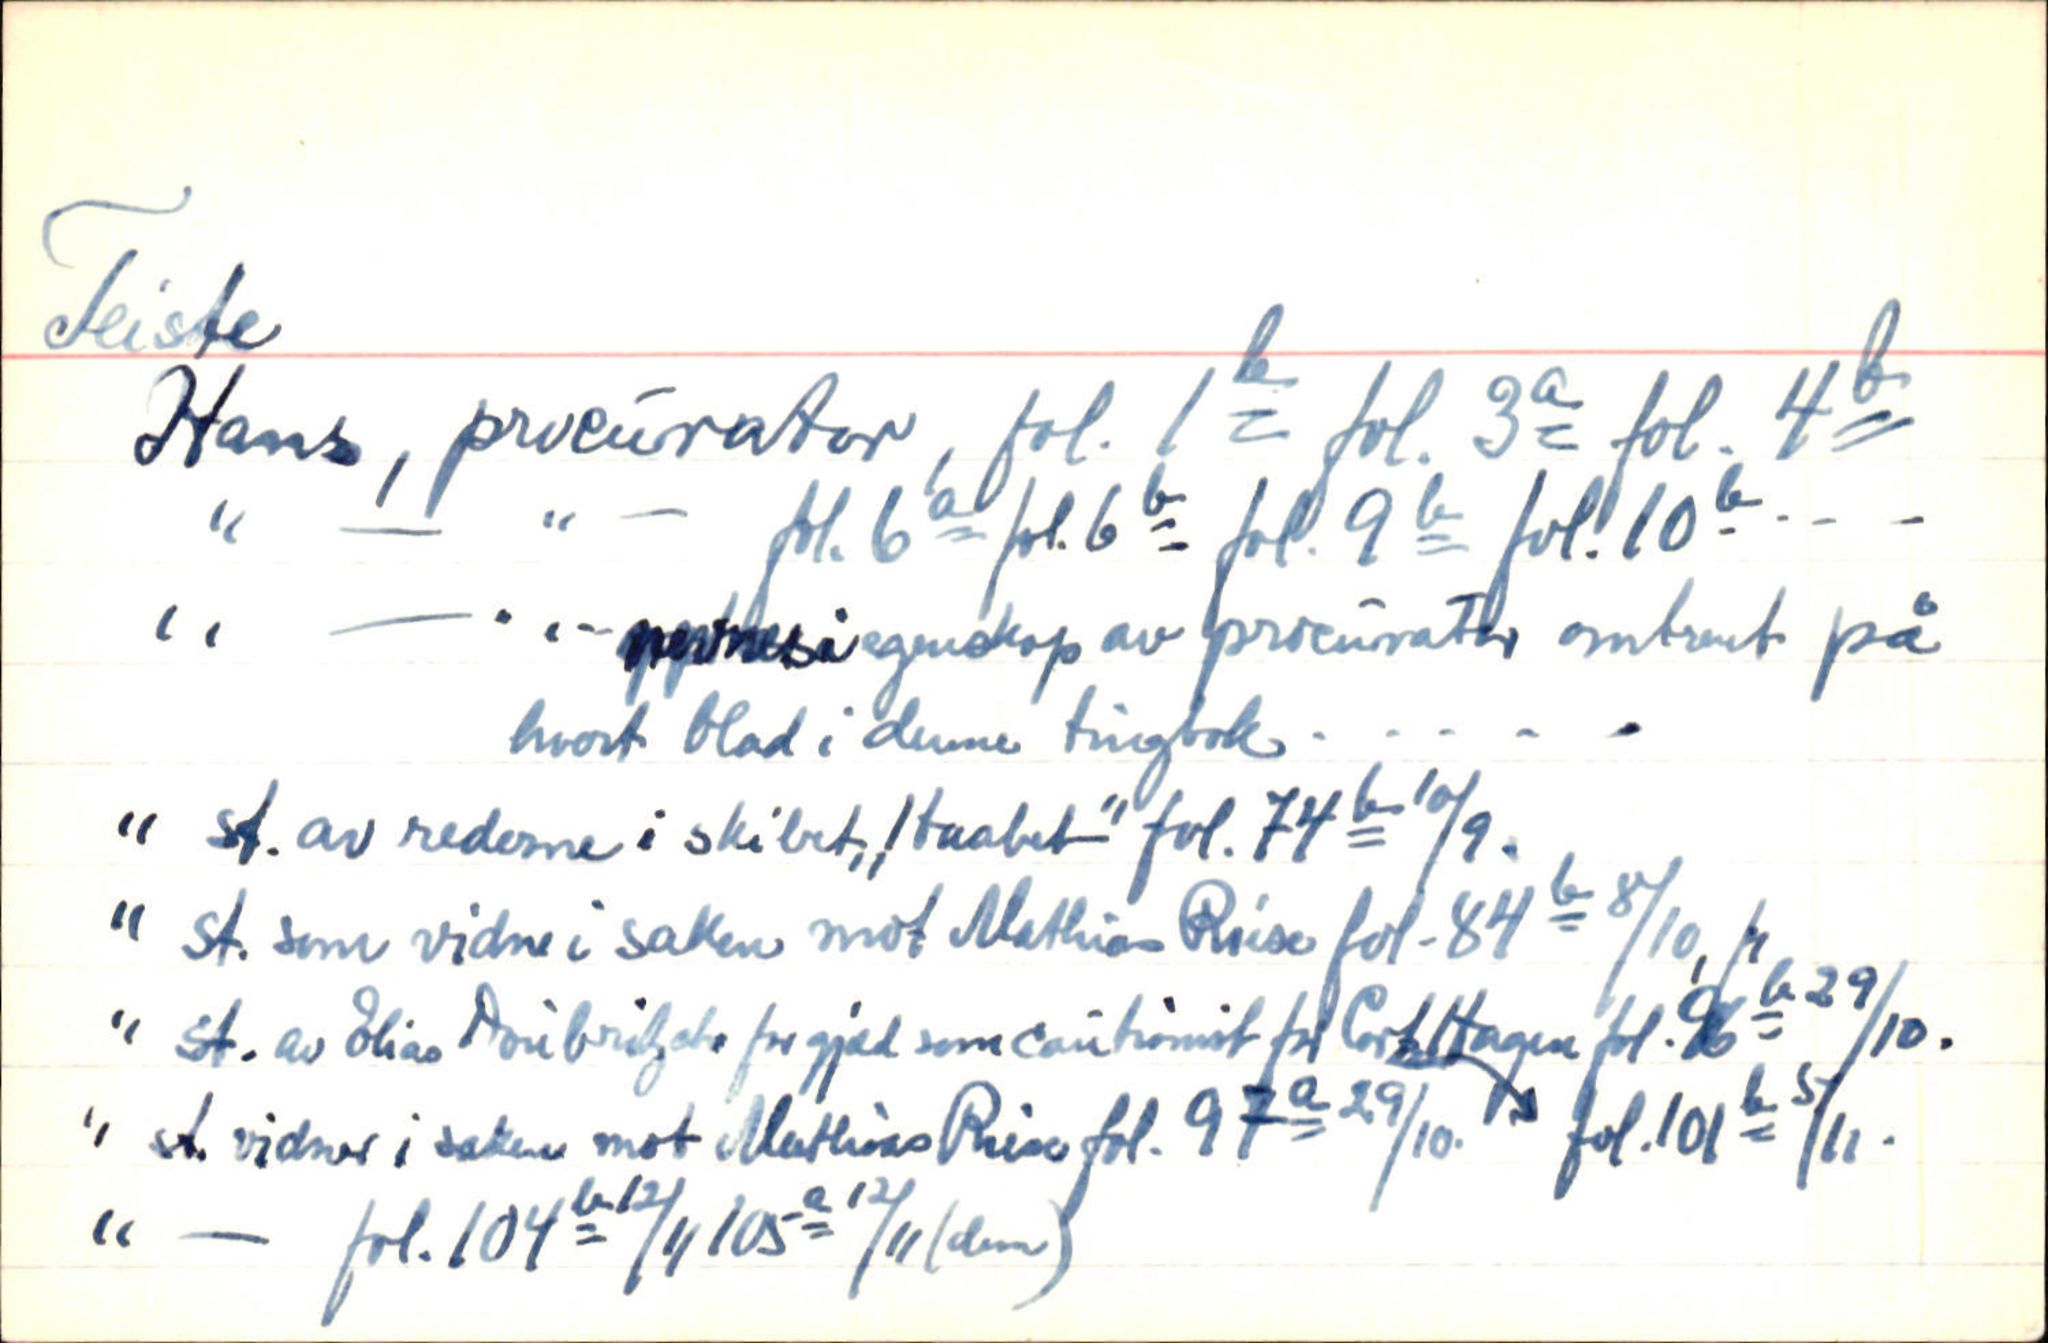 Teiste
Hans, procūrator, fol. 1b fol. 3a fol. 4b
" — " — fol. 6a fol. 6b fol. 9b fol. 10b - - -
" — " - nevnes i egenskap av procūrator omtrent på
hvort blad i denne tingbok - - - - -
" st. av rederne i skibet „Haabet" fol. 74b 10/9.
" st. som vidne i saken mot Mathias fol. 84b 8/10,
" st. av Elias for gjæld som caūtionist for Cort Hagen fol. 96b 29/10.
" st. vidner i saken mot Mathias fol. 97a 29/10. fol. 101b 5/11.
" — fol. 104b 12/11 105a 12/11 (dom)